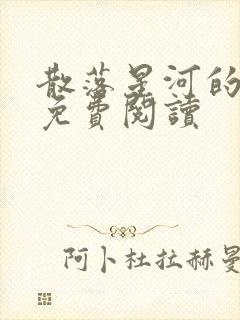 散落星河的
免費閱讀
阿卜杜拉赫曼